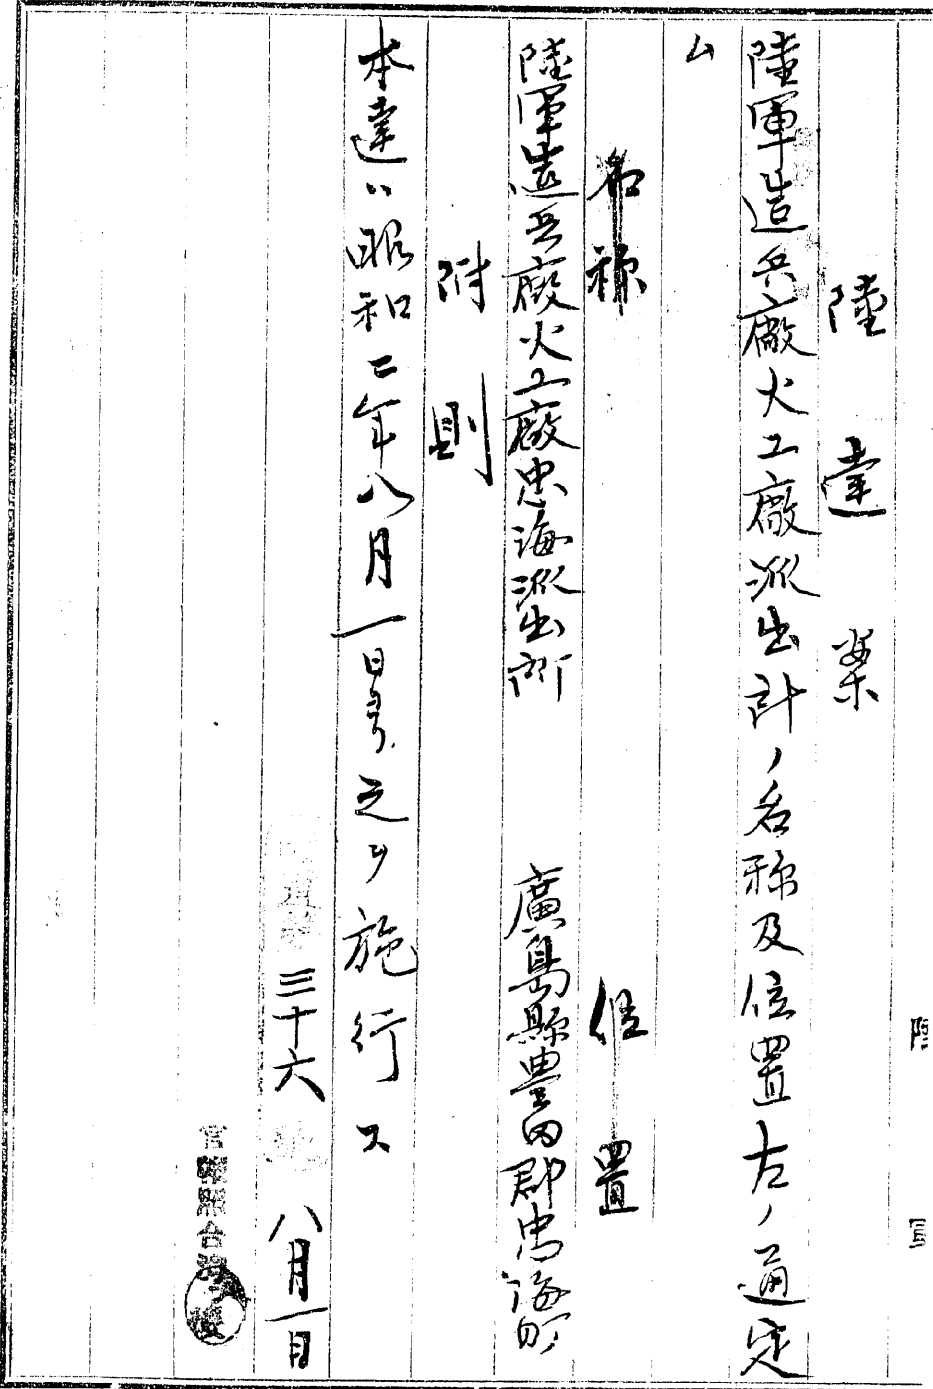 陸達案
陸軍造兵廠火工廠派出所ノ名称及位置左ノ通定
ム
名称 位置
陸軍造兵廠火工廠忠海派出所 廣島縣豊田郡忠海町
附則
本達ハ昭和二年八月一日ヨリ之ヲ施行ス
三十六 八月一日
官報照合済